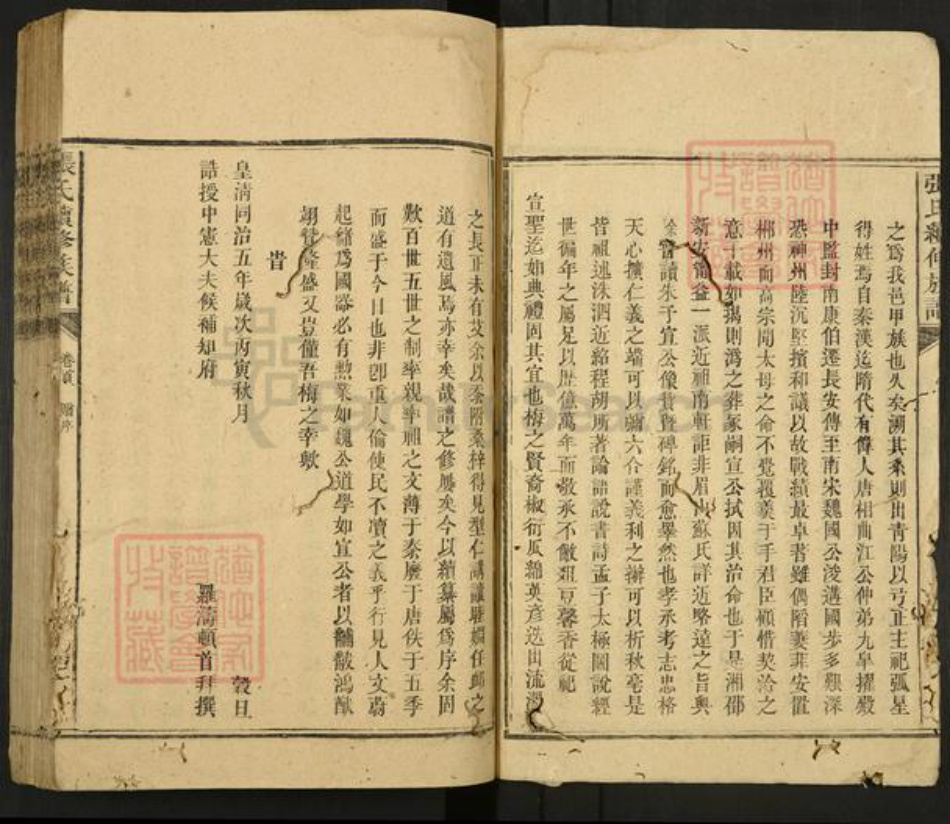 之爲我邑甲族也久矣溯其系則出靑陽以弓正主祀弧星
得姓焉自秦漢迄隋代有偉人唐相曲江公仲弟九皋擢殿
中監封南康伯遷長安傳至南宋魏國公浚遘國步多艱深
恐神州陸沉堅擯和議以故戰績最卓著雖偶階萋菲安置
郴州而高宗聞太母之命不覺覆羹于手君臣碩惜契洽之
意十載如揭則溈之葬冢嗣宣公拭因其治命也于是湘邵
新安甯益一派近祖南軒詎非眉山蘇氏詳近略遠之旨與
余嘗讀朱子宣公像贊暨碑銘而愈皋然也孝承考志忠格
天心擴仁義之端可以彌六合謹義利之辦可以析秋毫是
皆祖述洙泗近紹程胡所著論語說書詩孟子太極圖說經
世編年之屬足以歷億萬年而敬承不斁俎豆馨香從祀
宣聖迄如典禮固其宜也梅之賢裔椒衍瓜綿英彥迭出流
之長正未有艾余以忝附桑梓得見型仁講讓睦婣任卹之
道有遺風焉亦幸矣哉譜之修屢矣今以續纂屬爲序余周
歎百世五世之制率親率祖之文薄于秦廢于唐佚于五季
而盛于今日也非卽重人倫使民不凟之義乎行見人文翁
起緒爲國器必有勲業如魏公道學如宣公者以黼黻鴻猷
翊贊隆盛又豈僅吾梅之幸歟
旹
皇淸同治五年歲次丙寅秋月 榖旦
誥授中憲大夫候補知府 羅濤頓首拜撰
張氏續修族譜
卷首 贈序